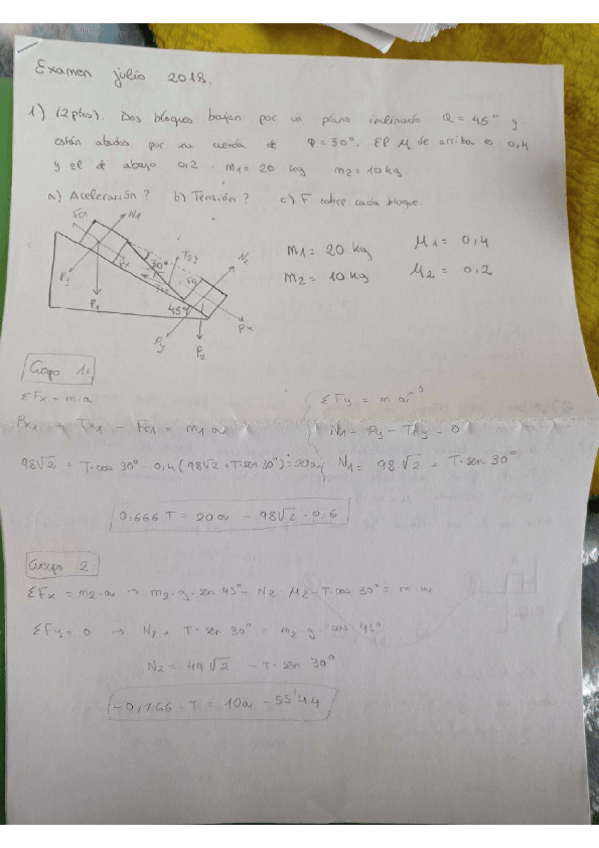 Examen julio 2018.
1) (2ptos). Dos bloques bajan por un plano inclinado α = 45° y
están atados por una cuerda de φ = 30°. El μ de arriba es 0,4
y el de abajo 0,2. m1 = 20 kg m2 = 10 kg.
a) Aceleración? b) Tensión? c) F sobre cada bloque.
Fr1 N1
30° T2y N2
m1 = 20 kg μ1 = 0,4
m2 = 10 kg μ2 = 0,2
Px
Py
P1
45°
Px
Py
P2
Cuerpo 1:
ΣFx = m·a
ΣFy = m·a
Px1 + Tx1 - Fr1 = m1 a
N1 - Py - T1y = 0
98√2 + T·cos 30° - 0,4 (98√2 + T·sen 30°) = 20a
N1 = 98√2 + T·sen 30°
0,666 T = 20a - 98√2 · 0,6
Cuerpo 2
ΣFx = m2·a → m2·g·sen 45° - N2·μ2 - T·cos 30° = m·a
ΣFy = 0 → N2 + T·sen 30° = m2·g·cos 45°
N2 = 49√2 - T·sen 30°
-0,766·T = 10a - 55'44